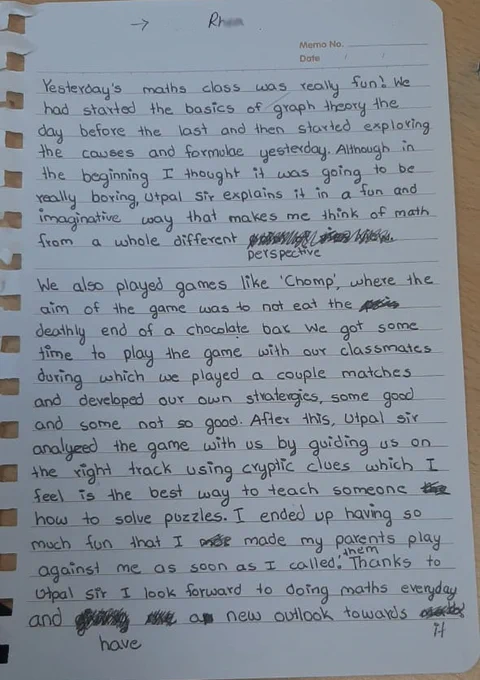 →
Memo No.
Date / /
Yesterday's maths class was really fun! We
had started the basics of graph theory the
day before the last and then started exploring
the causes and formulae yesterday. Although in
the beginning I thought it was going to be
really boring, Utpal sir explains it in a fun and
imaginative way that makes me think of math
from a whole different
perspective
We also played games like 'Chomp', where the
aim of the game was to not eat the
deathly end of a chocolate bar. We got some
time to play the game with our classmates
during which we played a couple matches
and developed our own stratergies, some good
and some not so good. After this, Utpal sir
analyzed the game with us by guiding us on
the right track using cryptic clues which I
feel is the best way to teach someone
how to solve puzzles. I ended up having so
much fun that I made my parents play
against me as soon as I called them! Thanks to
Utpal sir I look forward to doing maths everyday
and have a new outlook towards it